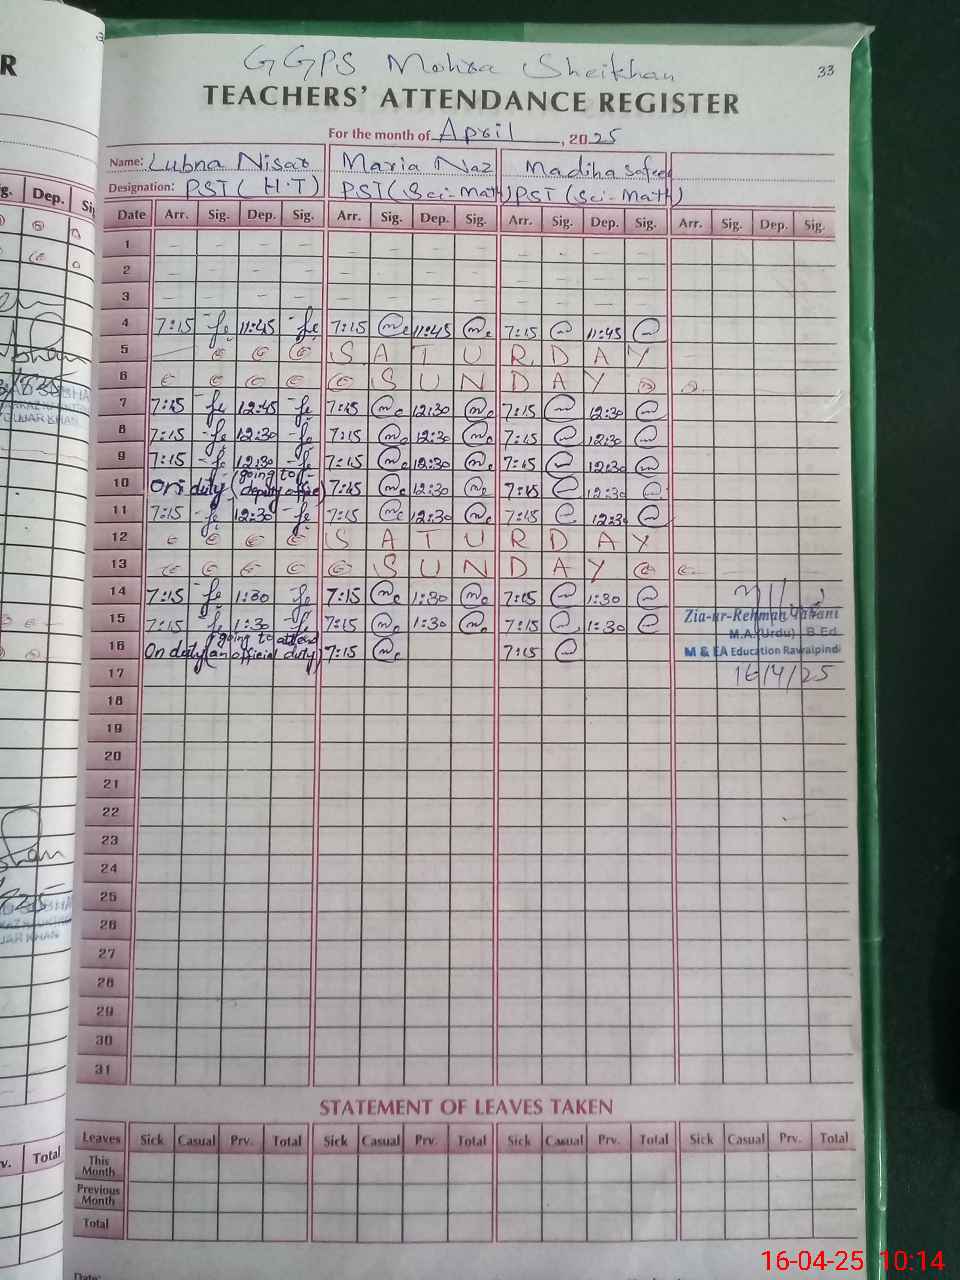 GGPS Mohra Sheikhan
33
TEACHERS' ATTENDANCE REGISTER
For the month of April, 2025
Name: Lubna Nisar Maria Naz Madiha Safeer
Designation: PST (H.T) PST (Sci-Math) PST (Sci-Math)
Date Arr. Sig. Dep. Sig. Arr. Sig. Dep. Sig. Arr. Sig. Dep. Sig. Arr. Sig. Dep. Sig.
1 – – – – – – – – – – – –
2 – – – – – – – – – – – –
3 – – – – – – – – – – – –
4 7:15 11:45 7:15 11:45 7:15 11:45
5 SATURDAY
6 SUNDAY
7 7:15 12:45 7:15 12:30 7:15 12:30
8 7:15 12:30 7:15 12:30 7:15 12:30
9 7:15 12:30 7:15 12:30 7:15 12:30
10 On duty (going to deputy office) 7:15 12:30 7:15 12:30
11 7:15 12:30 7:15 12:30 7:15 12:30
12 SATURDAY
13 SUNDAY
14 7:15 1:30 7:15 1:30 7:15 1:30
15 7:15 1:30 7:15 1:30 7:15 1:30
Zia-ur-Rehman
M.A (Urdu) B.Ed
16 On duty (going to attend an official duty) 7:15 7:15
M & EA Education Rawalpindi
17
16/4/25
18
19
20
21
22
23
24
25
26
27
28
29
30
31
STATEMENT OF LEAVES TAKEN
Leaves Sick Casual Prv. Total Sick Casual Prv. Total Sick Casual Prv. Total Sick Casual Prv. Total
This Month
Previous Month
Total
Date:
R
Dep.
Total
16-04-25 10:14